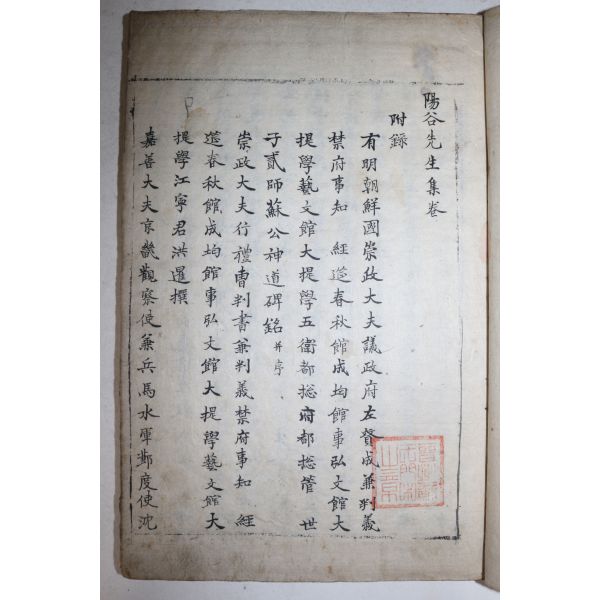 陽谷先生集卷
附錄
有明朝鮮國崇政大夫議政府左贊成兼判義
禁府事知 經筵春秋館成均館事弘文館大
提學藝文館大提學五衛都摠府都摠管 世
子貳師蘇公神道碑銘 幷序
崇政大夫行禮曹判書兼判義禁府事知 經
筵春秋館成均館事弘文館大提學藝文館大
提學江寧君洪暹撰
嘉善大夫京畿觀察使兼兵馬水軍節度使沈